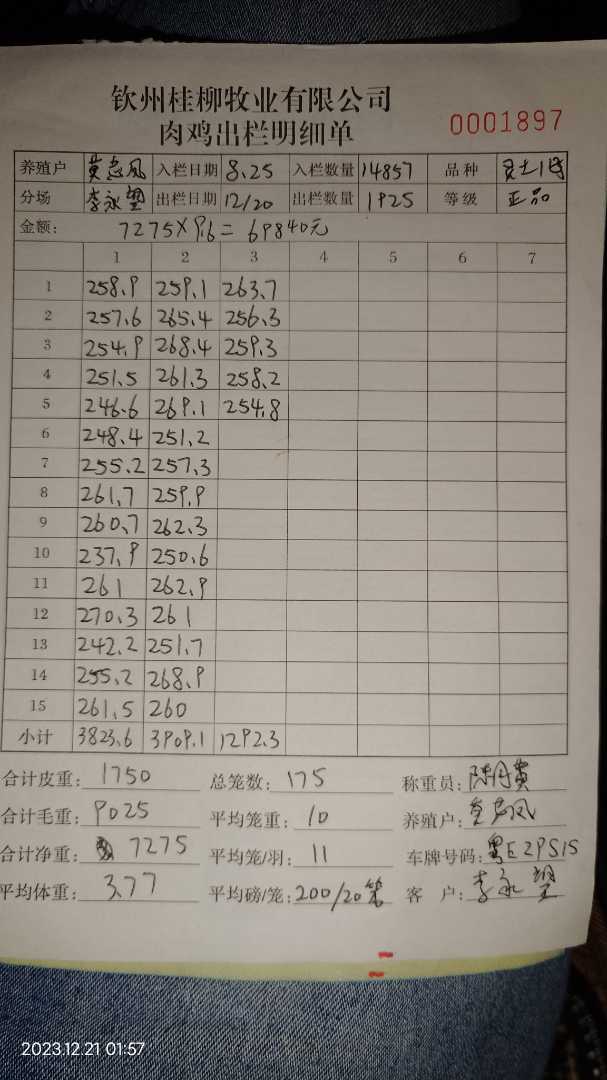 钦州桂柳牧业有限公司
肉鸡出栏明细单
0001897
养殖户 入栏日期 8.25 入栏数量 14857 品种
分场 李永望 出栏日期 12/20 出栏数量 1925 等级 正品
金额: 7275×9.6=69840元
1 2 3 4 5 6 7
1 258.9 259.1 263.7
2 257.6 265.4 256.3
3 254.9 268.4 259.3
4 251.5 261.3 258.2
5 246.6 269.1 254.8
6 248.4 251.2
7 255.2 257.3
8 261.7 259.9
9 260.7 262.3
10 237.9 250.6
11 261 262.9
12 270.3 261
13 242.2 251.7
14 255.2 268.9
15 261.5 260
小计 3823.6 3909.1 1292.3
合计皮重: 1750 总笼数: 175 称重员: 陈丹黄
合计毛重: 9025 平均笼重: 10 养殖户:
合计净重: 7275 平均笼/羽: 11 车牌号码: 粤E2PS15
平均体重: 3.77 平均磅/笼: 200/20笼 客 户: 李永望
2023.12.21 01:57